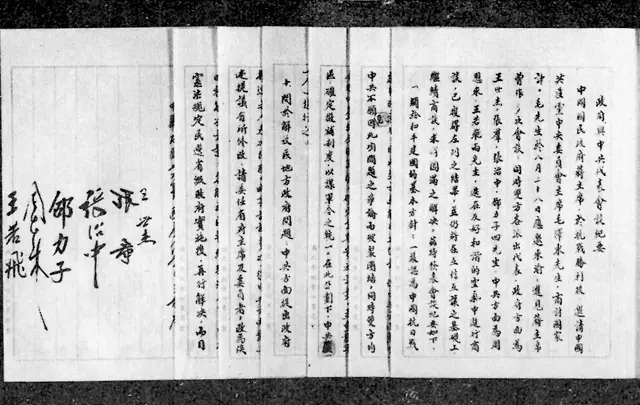 政府與中共代表會談紀要
中國國民政府蔣主席於抗戰勝利後，邀請中國
共產黨中央委員會主席毛澤東先生，商討國家
計，毛先生於八月二十八日應邀來渝，進見蔣主席
曾作多次會談，同時雙方各派出代表，政府方面為
王世杰，張羣，張治中，邵力子四先生，中共方面為周
恩來，王若飛兩先生，迭在友好和諧的空氣中進行商
談，已獲得左列之結果，並仍將在互信互讓之基礎上
繼續商談，求得圓滿之解決，茲特發表會談紀要如下。
一、關於和平建國的基本方針，一致認為中國抗日戰
中共不願因此項問題之爭論而破裂團結，同時雙方均
區，確定徵補制度，以謀軍令之統一，在此計劃下，中共
十、關於解放區地方政府問題，中共方面提出政府
述提議有所修改，請委任省府主席及委員者，改為陝
憲法規定民選省級政府實施後，再行解決，而目
王世杰
張羣
張治中
邵力子
周恩來
王若飛